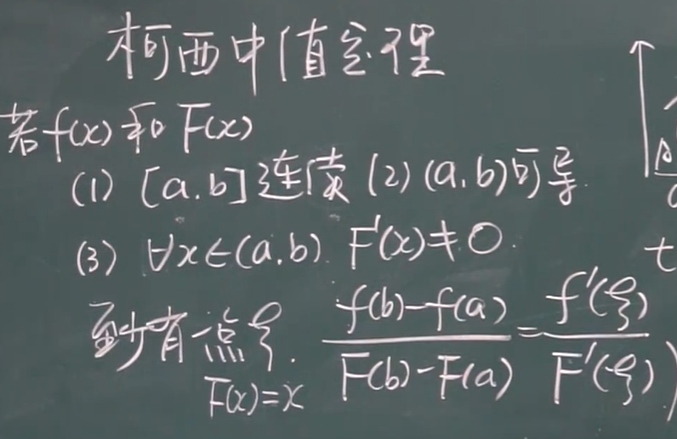 柯西中值定理
若f(x)和F(x)
(1) [a.b]连续 (2) (a.b)可导.
(3) ∀x∈(a.b). F'(x)≠0.
至少有一点ξ. (f(b)-f(a))/(F(b)-F(a)) = f'(ξ)/F'(ξ)
F(x)=x
t